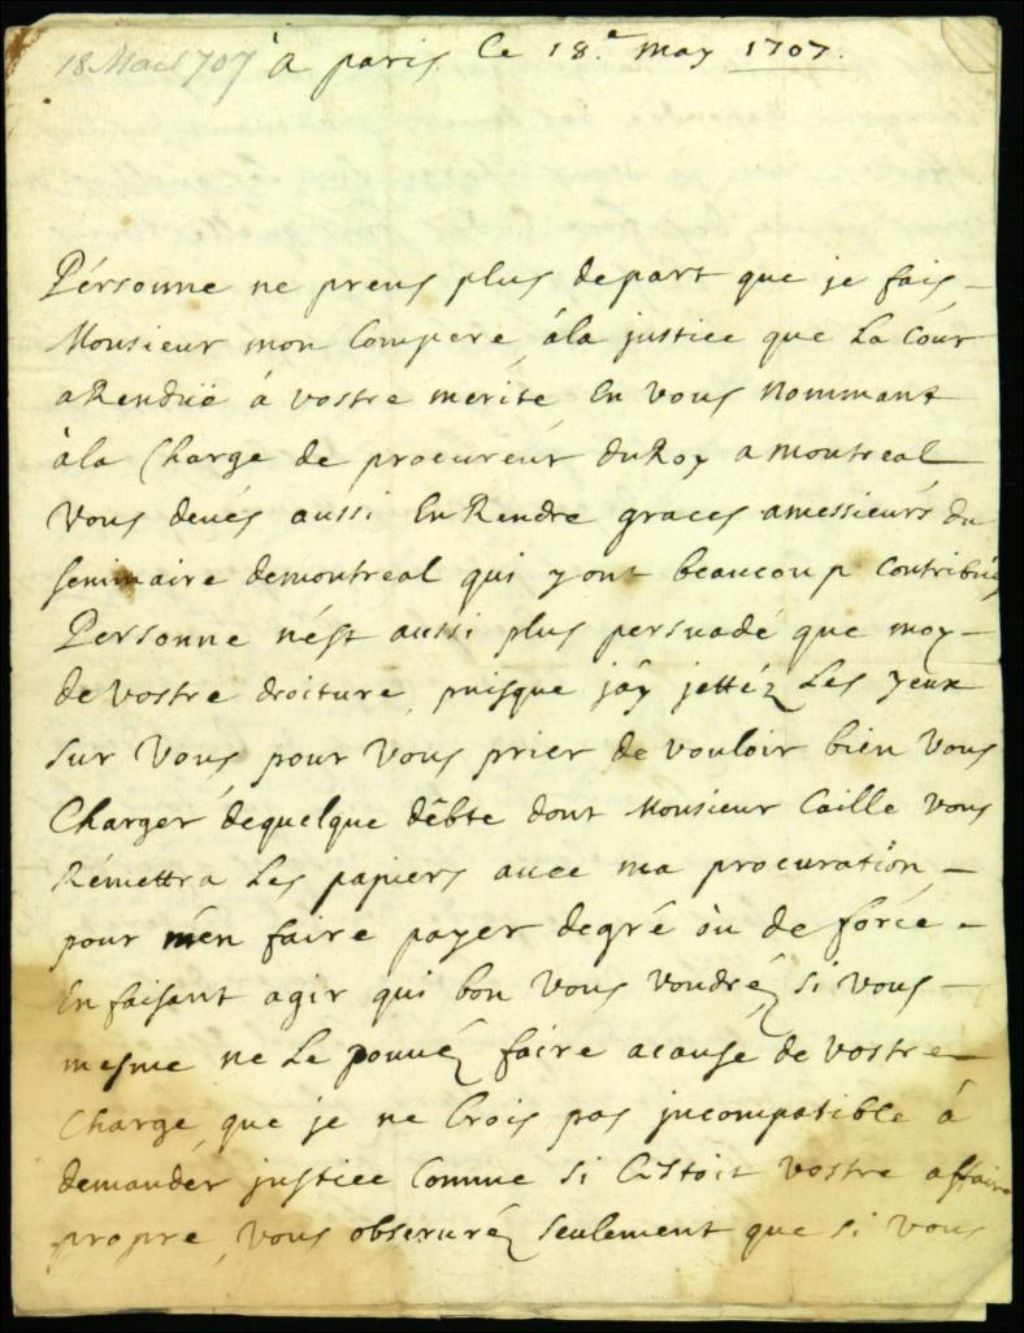 18 Mai 1707 à paris. Ce 18.e may 1707.
Pérsonne ne prens plus depart que je fais
Monsieur mon Compere, ála justice que La Cour
aRenduë á vostre merite En vous nommant
àla Charge de procureur duRoy a montreal
Vous devés aussi EnRendre graces amessieurs du
seminaire demontreal qui yont beaucoup Contribué
Personne nést aussi plus persuadé que moy
de vostre droiture, puisque jáy jettéz Les yeux
sur Vous, pour Vous prier de vouloir bien Vous
Charger dequelque débte dont Monsieur Caille Vous
Rémettra Les papiers avec ma procuration,
pour mén faire payer degré óu de force
En faisant agir qui bon Vous voudréz si vous
mesme ne Le pouuéz faire acause de vostre
Charge, que je ne Crois pas jncompatible á
demander justice Comme si Cistoit vostre affaire
propre, vous obseruréz seulement que si vous